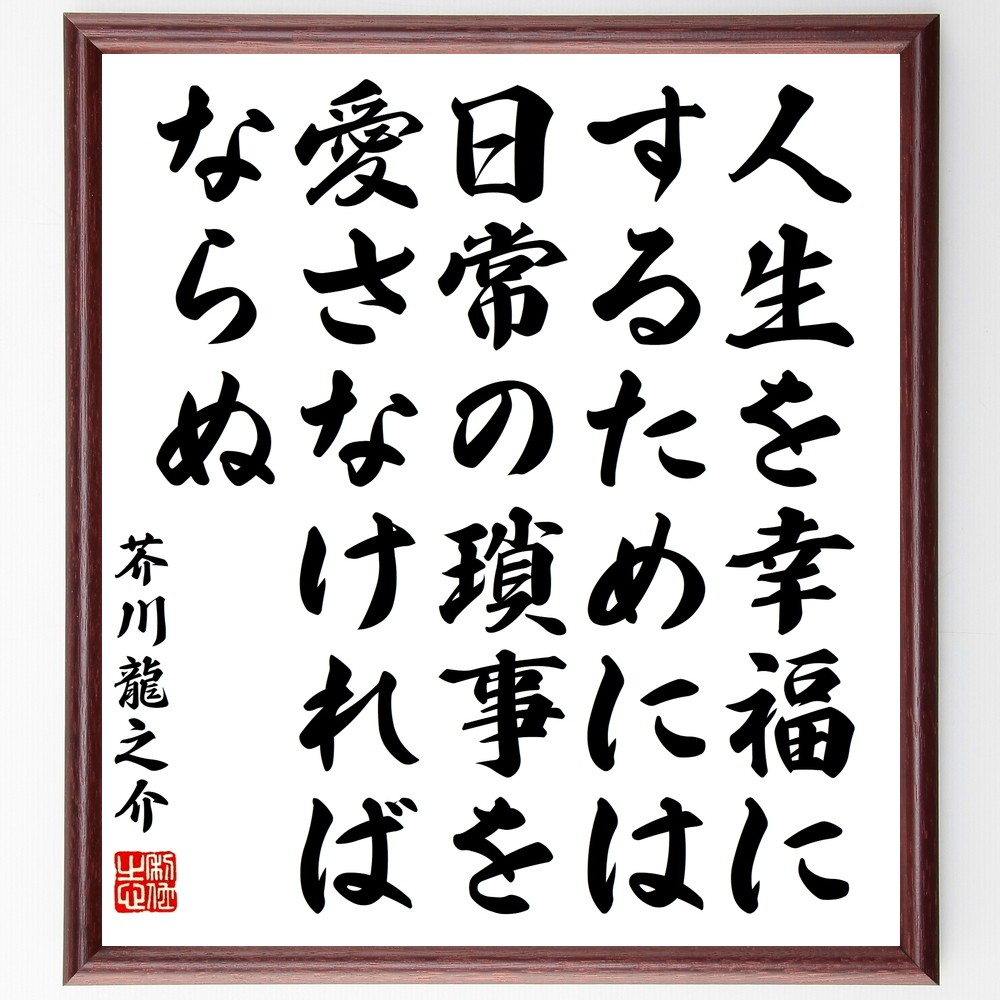 人生を幸福に
するためには
日常の瑣事を
愛さなければ
ならぬ
芥川龍之介